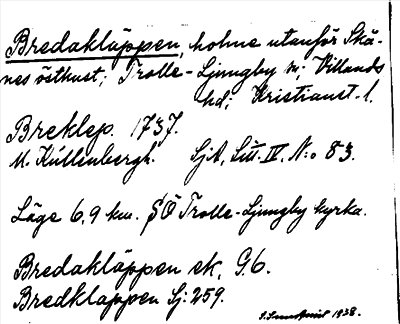 Bredakläppen, holme utanför Skå-
nes östkust; Trolle-Ljungby sn; Villands
hd; Kristianst. l.
Breklep. 1737.
M. Kúllenbergh. SjA, Litt. IV. N:o 83.
Läge 6,9 km. SÖ Trolle-Ljungby kyrka.
Bredakläppen ek, G6.
Bredklappen Sj: 259.
1938.